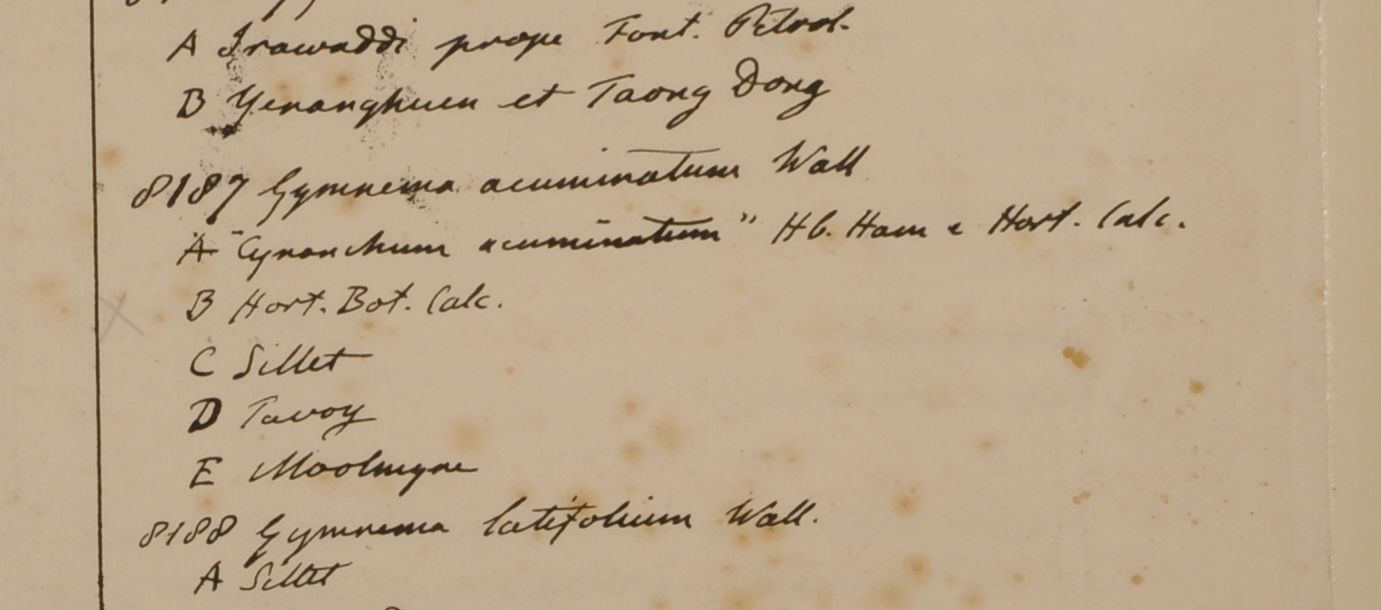 A Irawaddi prope Font. Petrol.
B Yenanghuen et Taong Dong
8187 Gymnema acuminatum Wall
A "Cynanchum acuminatum" Hb. Ham e Hort. Calc.
B Hort. Bot. Calc.
C Sillet
D Tavoy
E Moolmyne
8188 Gymnema latifolium Wall.
A Sillet